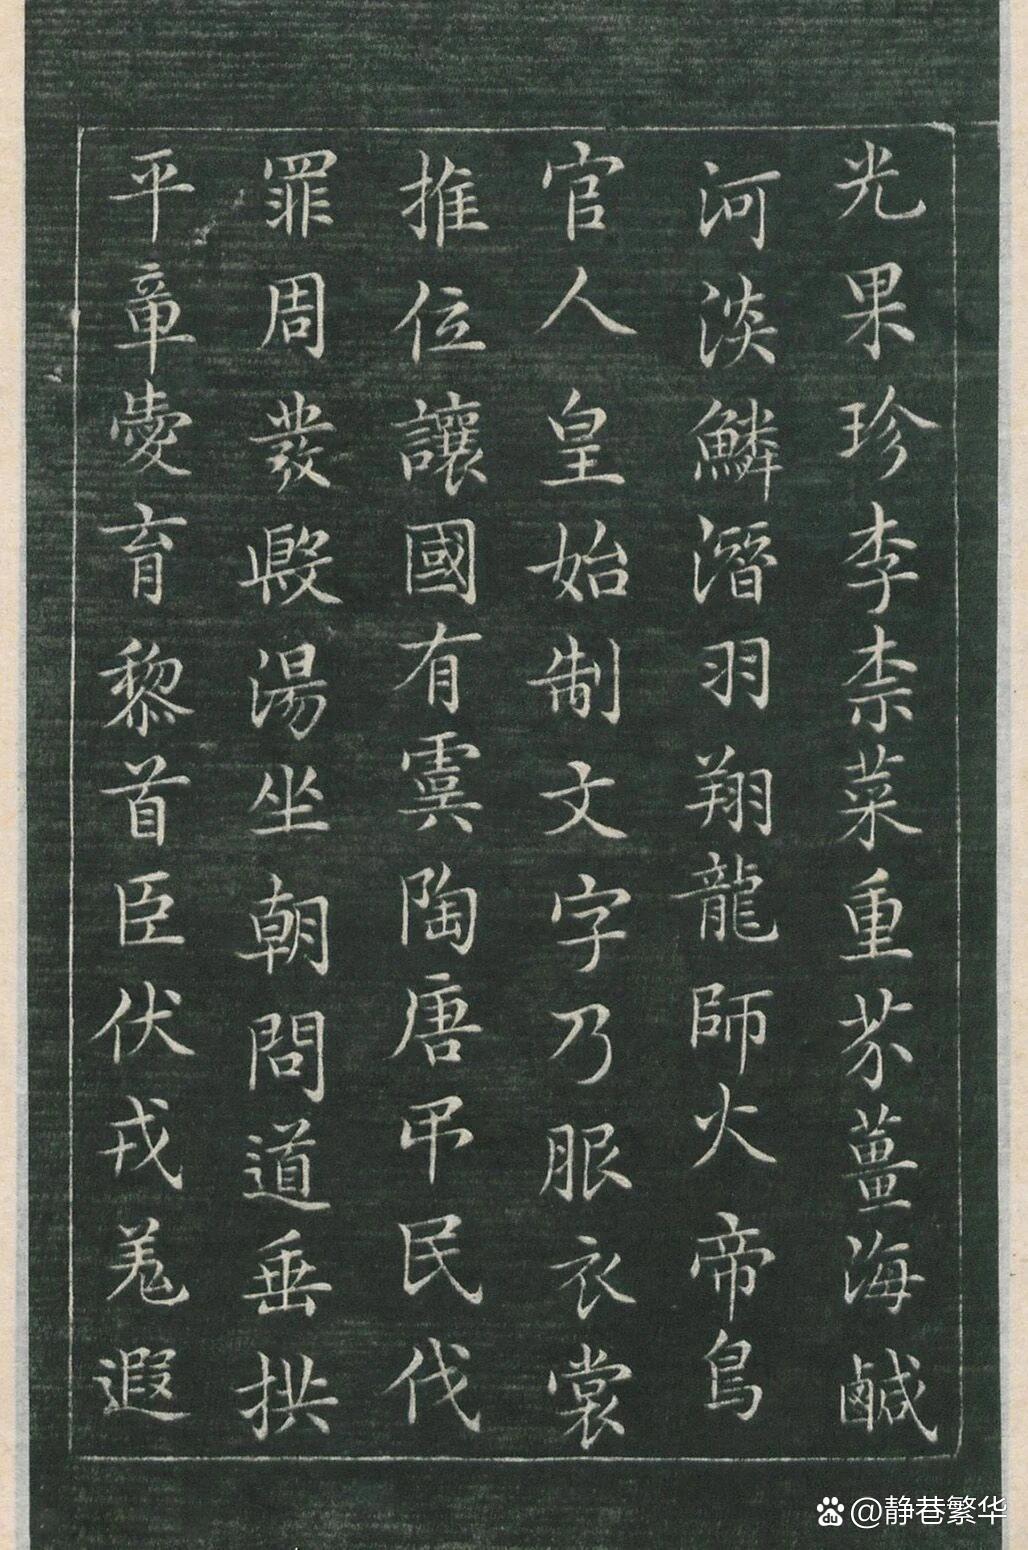 光果珍李柰菜重芥薑海鹹
河淡鱗潛羽翔龍師火帝鳥
官人皇始制文字乃服衣裳
推位讓國有虞陶唐弔民伐
罪周發殷湯坐朝問道垂拱
平章愛育黎首臣伏戎羌遐
du @静巷繁华